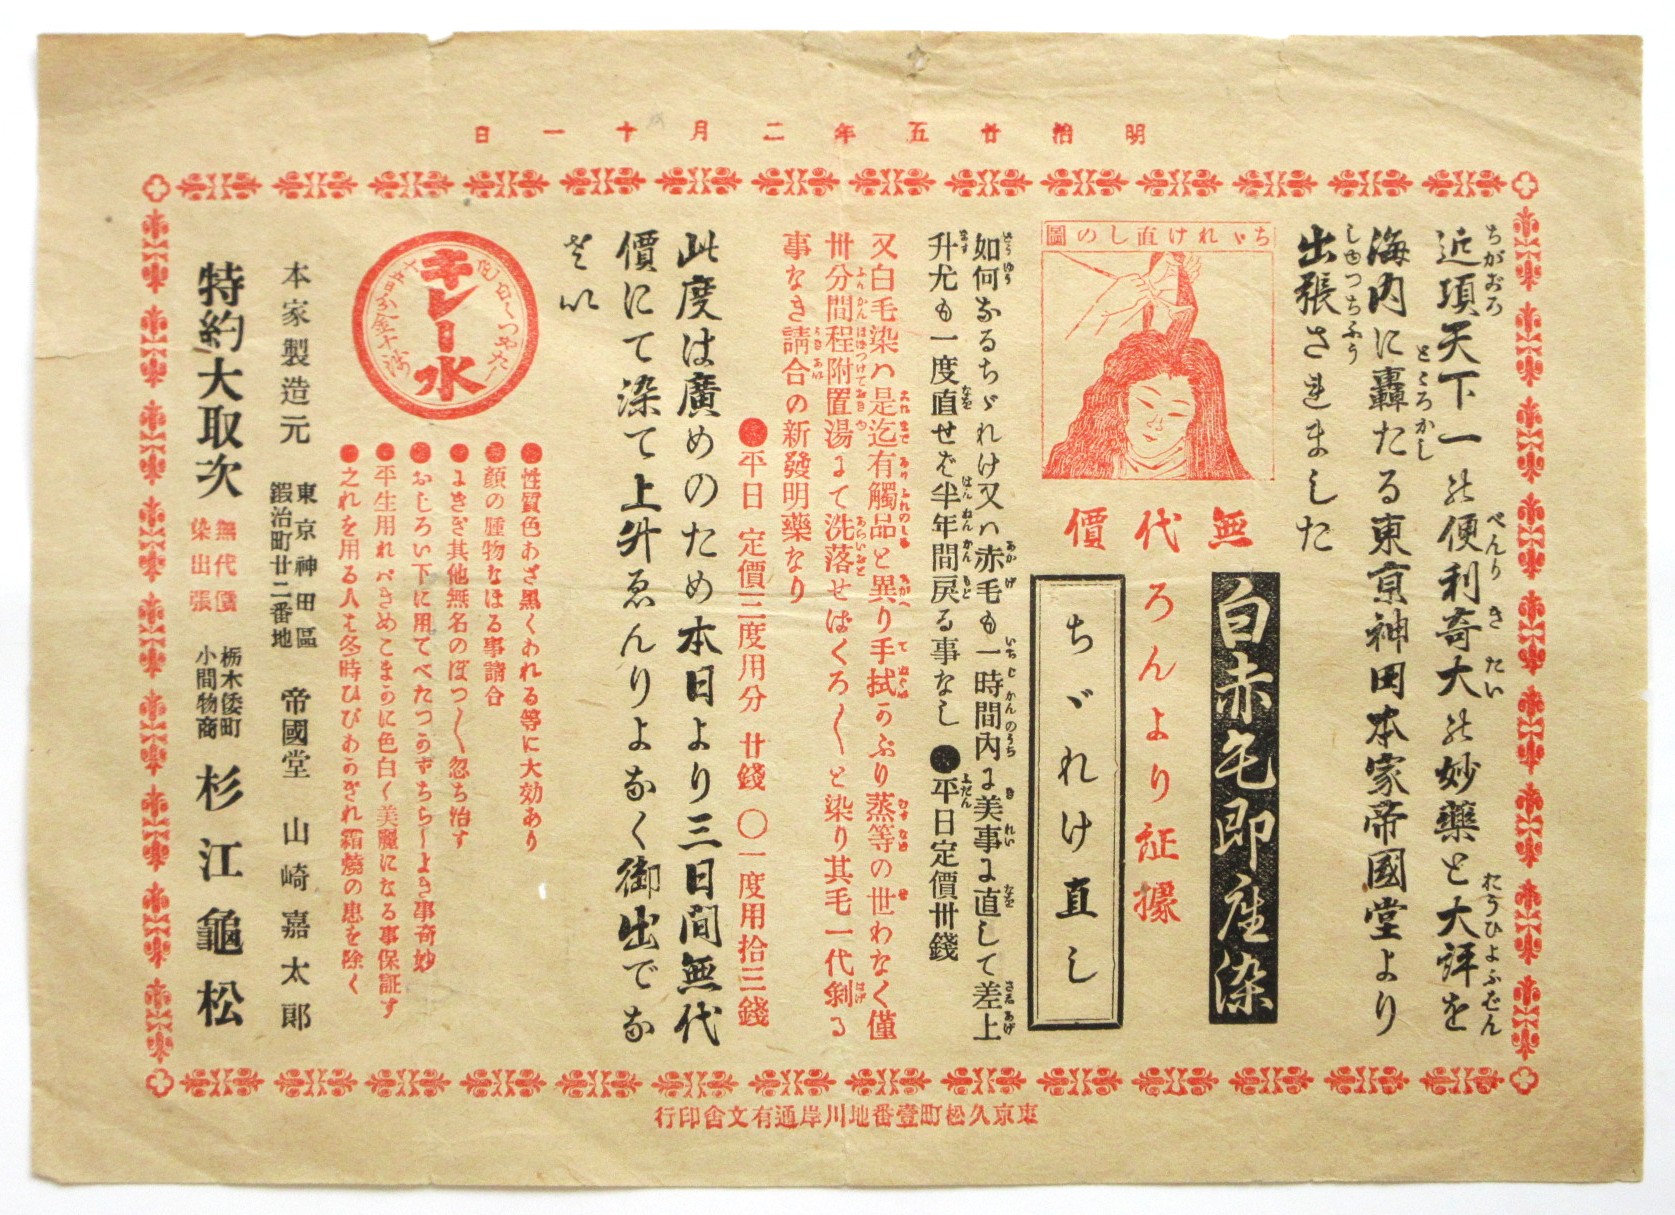 明治廿五年二月十一日
近項天下一の便利奇大の妙藥と大評を
海内に轟たる東京神田本家帝國堂より
出張さましました
ちゞれけ直しの圖
無代價
白赤毛即座染
ろんより証據
ちゞれけ直し
如何なるちゞれけ又ハ赤毛も一時間内に美事に直して差上
升尤も一度直せば半年間戻る事なし ●平日定價卅錢
又白毛染ハ是迄有觸品と異り手拭かぶり蒸等の世わなく僅
卅分間程附置湯にて洗落せばくろ〱と染り其毛一代剝る
事なき請合の新發明藥なり
●平日 定價三度用分 廿錢 ○一度用拾三錢
此度は廣めのため本日より三日間無代
價にて染て上升ゑんりよなく御出でな
さい
キレー水
●性質色あざ黒くわれる等に大効あり
●顔の腫物なほる事請合
●よきぎ其他無名のぼつ〱忽ち治す
●おしろい下に用てべたつかずちらしよき事奇妙
●平生用ればきめこまかに色白く美麗になる事保証す
●之れを用る人は冬時ひびあかぎれ霜燒の患を除く
本家製造元 東京神田區鍜治町廿二番地 帝國堂 山崎嘉太郎
特約大取次 無代價染出張 栃木倭町小間物商 杉江龜松
東京久松町壹番地川岸通有文舍印行